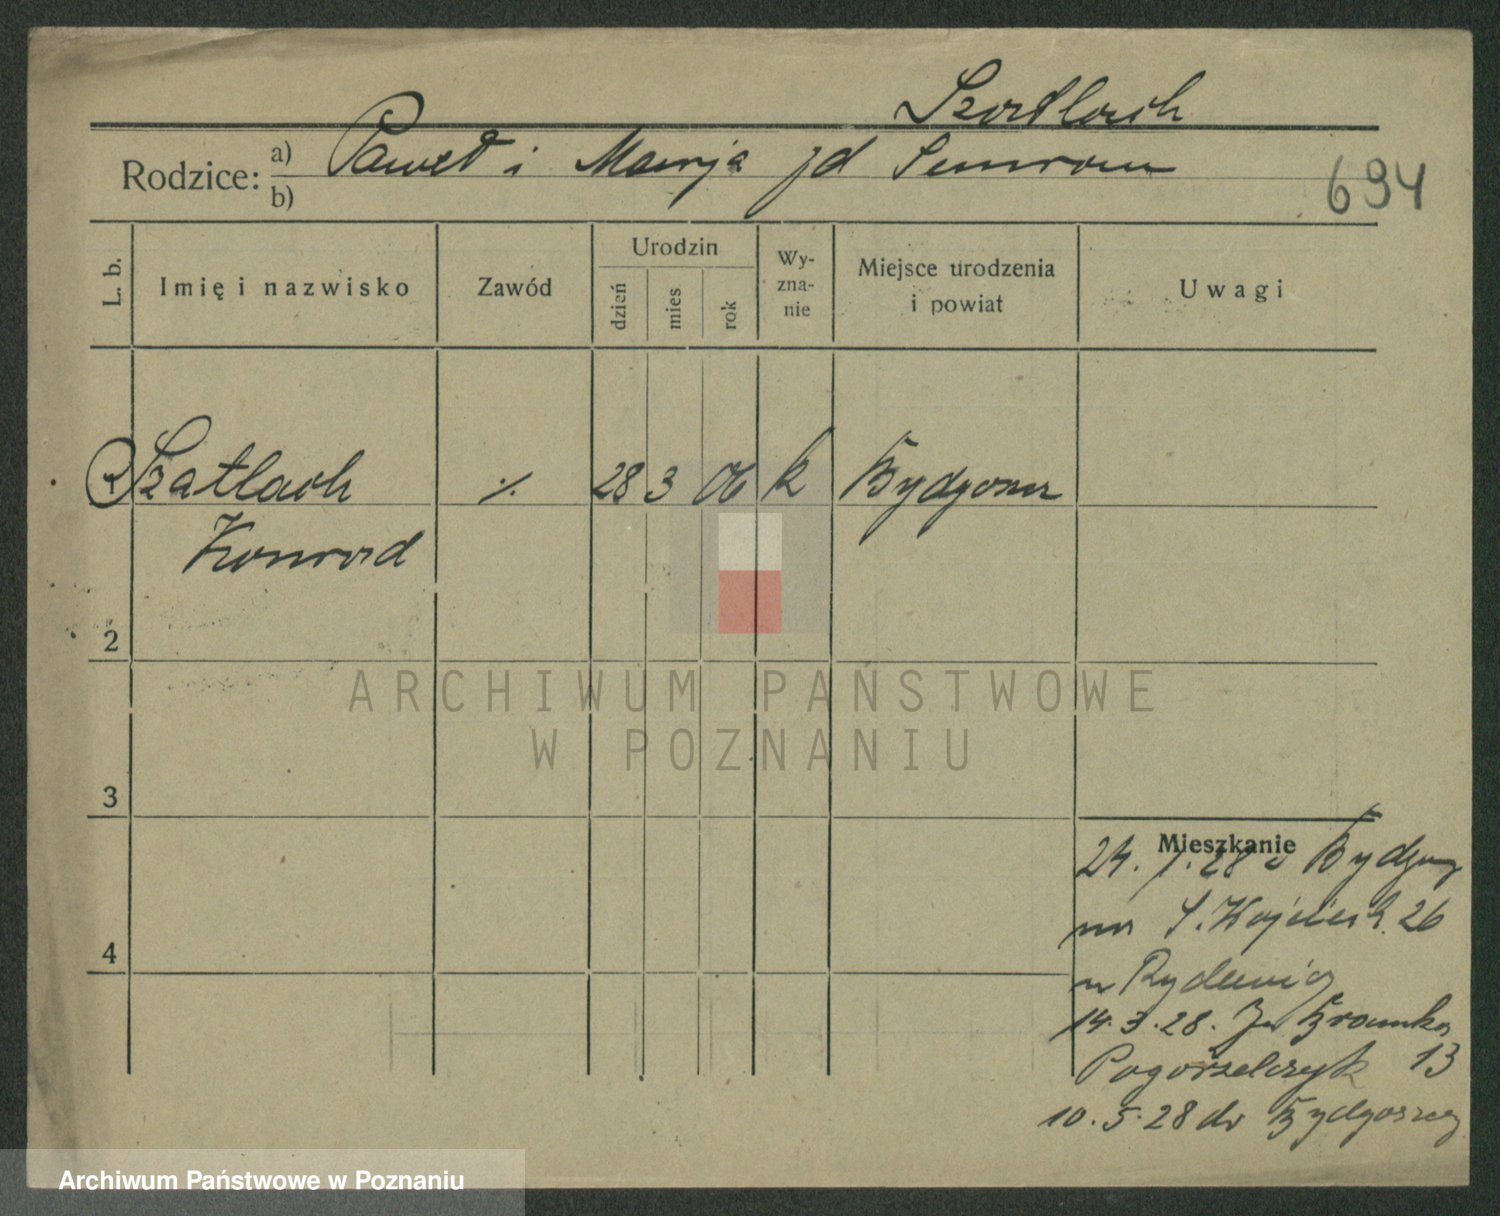 Szatlach
Rodzice: a) Paweł i Marja zd
b)
694
L. b.
Imię i nazwisko
Zawód
Urodzin
dzień
mies
rok
Wy-
zna-
nie
Miejsce urodzenia
i powiat
Uwagi
1 Szatlach ./. 28 3 06 k Bydgoszcz
Konrad
2
3
4
Mieszkanie
24. 1. 28 z Bydgoszczy
na S. Wojciech. 26
u
14. 3. 28. Ja Bramka 13
Pogorzelczyk
10. 5. 28 do Bydgoszczy
ARCHIWUM PAŃSTWOWE
W POZNANIU
Archiwum Państwowe w Poznaniu